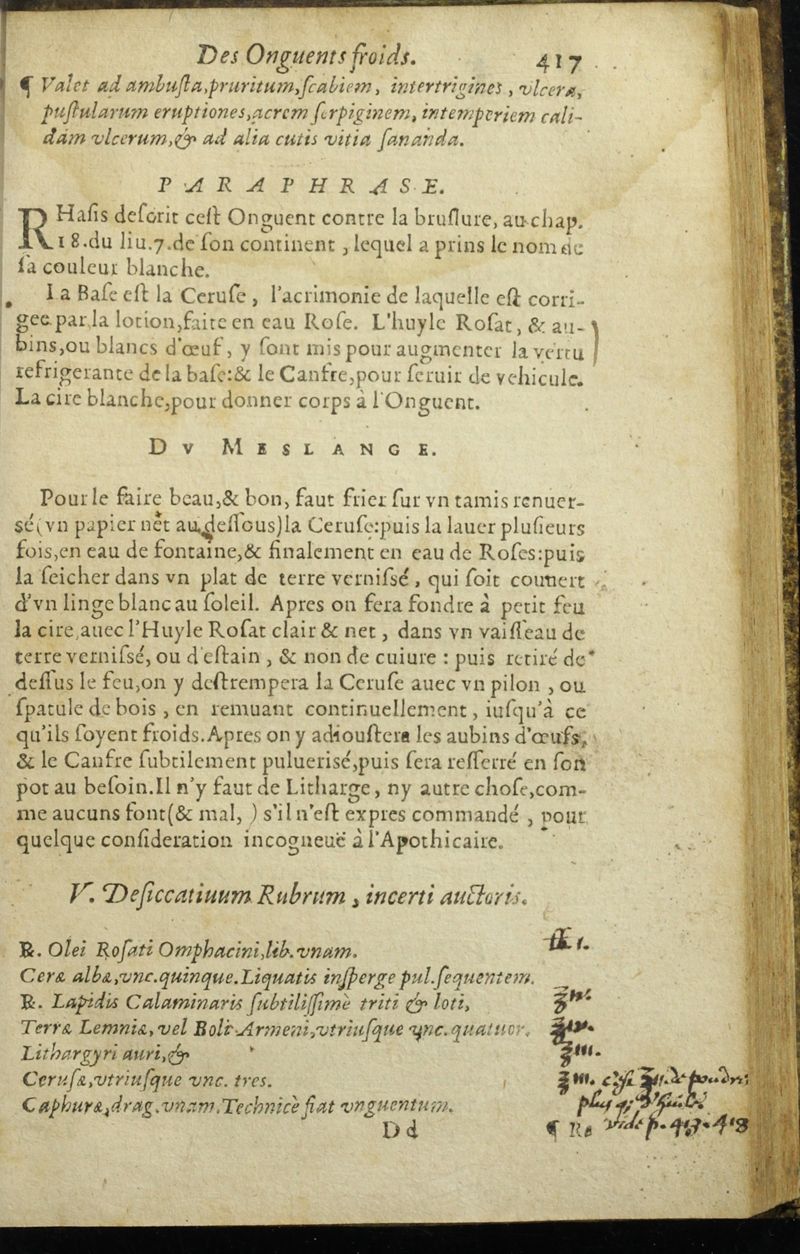 Des Onguents froids. 417
¶ Valet ad ambusta,pruritum,scabiem, intertrigines, vlcera,
pustularum eruptiones,acrem serpiginem, intemperiem cali-
dam vlcerum,& ad alia cutis vitia sananda.
PARAPHRASE.
RHasis descrit cest Onguent contre la bruslure, au chap.
18.du liu.7.de son continent, lequel a prins le nom de
sa couleur blanche.
La Base est la Ceruse, l'acrimonie de laquelle est corri-
gee par la lotion,faite en eau Rose. L'huyle Rosat, & au-
bins,ou blancs d'œuf, y sont mis pour augmenter la vertu
refrigerante de la base:& le Canfre,pour seruir de vehicule.
La cire blanche,pour donner corps à l'Onguent.
DV MESLANGE.
Pour le faire beau,& bon, faut frier sur vn tamis renuer-
sé(vn papier net au dessous)la Ceruse:puis la lauer plusieurs
fois,en eau de fontaine,& finalement en eau de Roses:puis
la seicher dans vn plat de terre vernissé, qui soit couuert
d'vn linge blanc au soleil. Apres on fera fondre à petit feu
la cire,auec l'Huyle Rosat clair & net, dans vn vaisseau de
terre vernissé, ou d'estain, & non de cuiure : puis retiré de
dessus le feu,on y destrempera la Ceruse auec vn pilon, ou
spatule de bois, en remuant continuellement, iusqu'à ce
qu'ils soyent froids.Apres on y adioustera les aubins d'œufs,
& le Canfre subtilement puluerisé,puis sera resserré en son
pot au besoin.Il n'y faut de Litharge, ny autre chose,com-
me aucuns font(& mal, ) s'il n'est expres commandé, pour
quelque consideration incogneuë à l'Apothicaire.
V. Desiccatiuum Rubrum, incerti auctoris.
℞. Olei Rosati Omphacini,lib.vnam.
Ceræ albæ,vnc.quinque.Liquatis insperge pul.sequentem.
℞. Lapidis Calaminaris subtilissimè triti & loti,
Terræ Lemniæ,vel Boli Armeni,vtriusque vnc.quatuor.
Lithargyri auri,&
Cerusæ,vtriusque vnc. tres.
Caphuræ,drag.vnam,Technicè fiat vnguentum.
Dd ¶ Re vide p. 417. 418